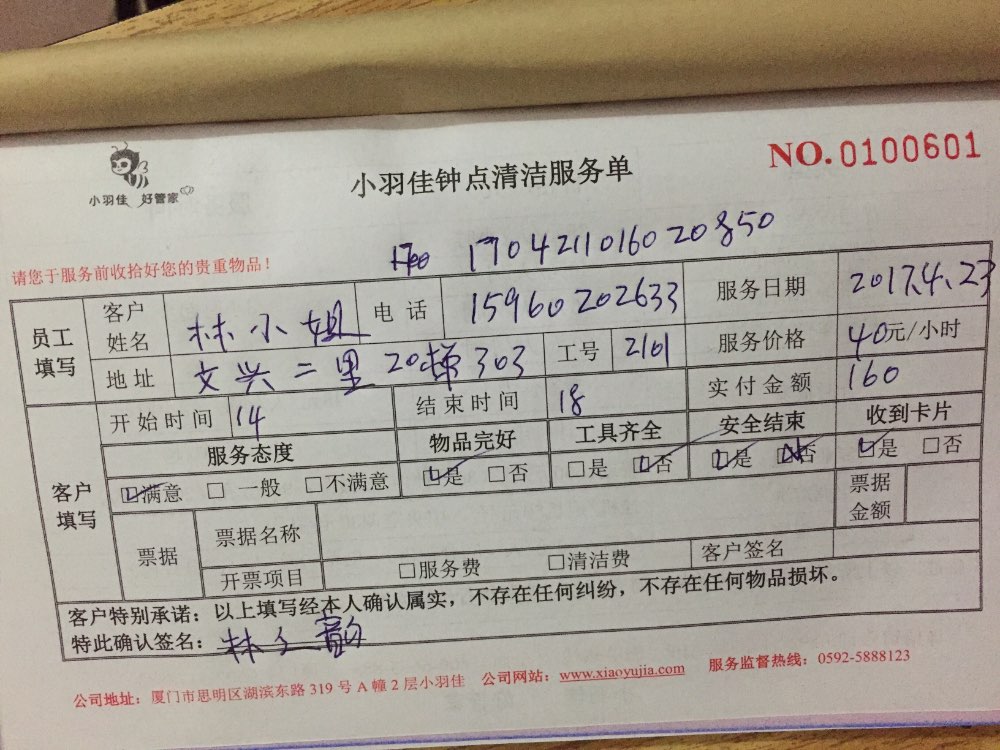 小羽佳 好管家
小羽佳钟点清洁服务单
NO.0100601
170421101602085０
请您于服务前收拾好您的贵重物品！
员工填写 客户姓名 林小姐 电话 15960202633 服务日期 2017.4.23
地址 文兴二里20梯303 工号 2101 服务价格 40元/小时
客户填写 开始时间 14 结束时间 18 实付金额 160
服务态度 物品完好 工具齐全 安全结束 收到卡片
☑满意 □一般 □不满意 ☑是 □否 □是 ☑否 ☑是 □否 ☑是 □否
票据 票据名称 票据金额
开票项目 □服务费 □清洁费 客户签名
客户特别承诺：以上填写经本人确认属实，不存在任何纠纷，不存在任何物品损坏。
特此确认签名：林
公司地址：厦门市思明区湖滨东路 319 号 A 幢 2 层小羽佳 公司网站：www.xiaoyujia.com 服务监督热线：0592-5888123